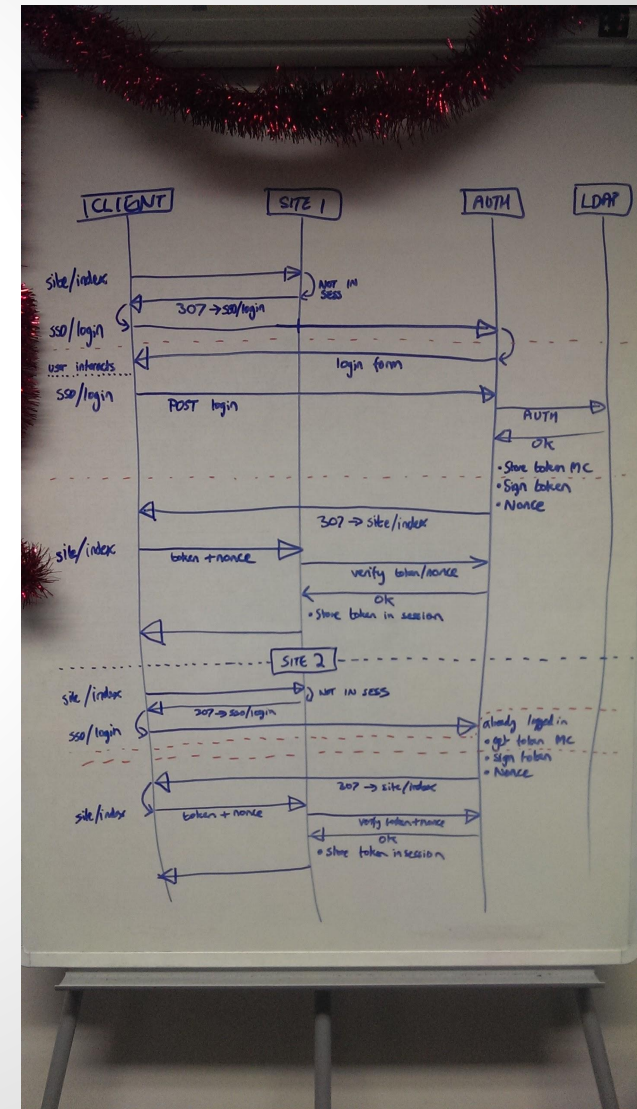 CLIENT
SITE 1
AUTH
LDAP
site/index
NOT IN
SESS
307 → sso/login
sso/login
login form
user interacts
sso/login
POST login
AUTH
OK
• Store token MC
• Sign token
• Nonce
307 → site/index
site/index
token + nonce
verify token/nonce
Ok
• Store token in session
SITE 2
site/index
NOT IN SESS
307 → sso/login
sso/login
already logged in
• get token MC
• sign token
• Nonce
307 → site/index
site/index
token + nonce
verify token+nonce
OK
• Store token in session